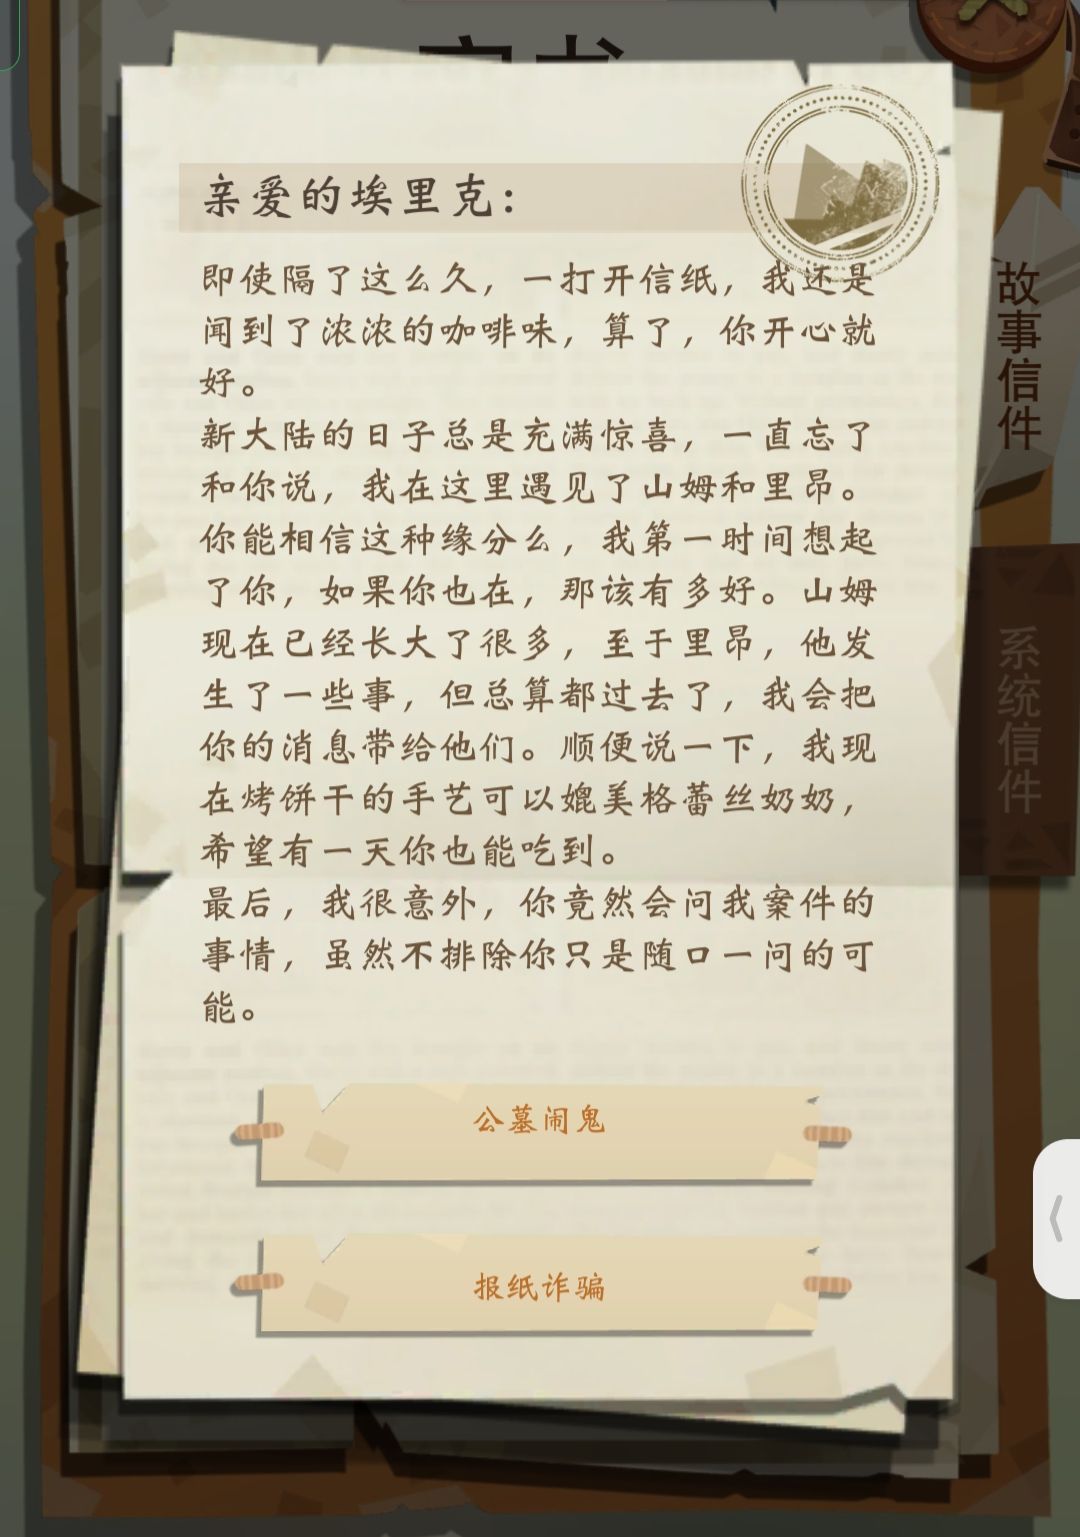 亲爱的埃里克：
即使隔了这么久，一打开信纸，我还是
闻到了浓浓的咖啡味，算了，你开心就
好。
新大陆的日子总是充满惊喜，一直忘了
和你说，我在这里遇见了山姆和里昂。
你能相信这种缘分么，我第一时间想起
了你，如果你也在，那该有多好。山姆
现在已经长大了很多，至于里昂，他发
生了一些事，但总算都过去了，我会把
你的消息带给他们。顺便说一下，我现
在烤饼干的手艺可以媲美格蕾丝奶奶，
希望有一天你也能吃到。
最后，我很意外，你竟然会问我案件的
事情，虽然不排除你只是随口一问的可
能。
公墓闹鬼
报纸诈骗
故事信件
系统信件